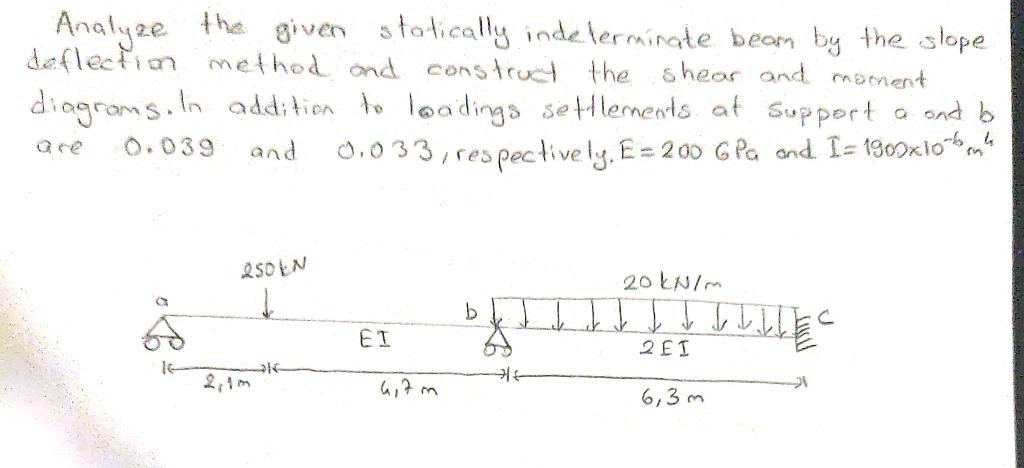 Analyze the given statically indeterminate beam by the slope
deflection method and construct the shear and moment
diagrams. In addition to loadings settlements at support a and b
are 0.039 and 0.033, respectively. E=200 GPa and I=1900x10⁻⁶m⁴
250kN
20kN/m
a
b
c
EI
2EI
2,1m
4,7m
6,3m